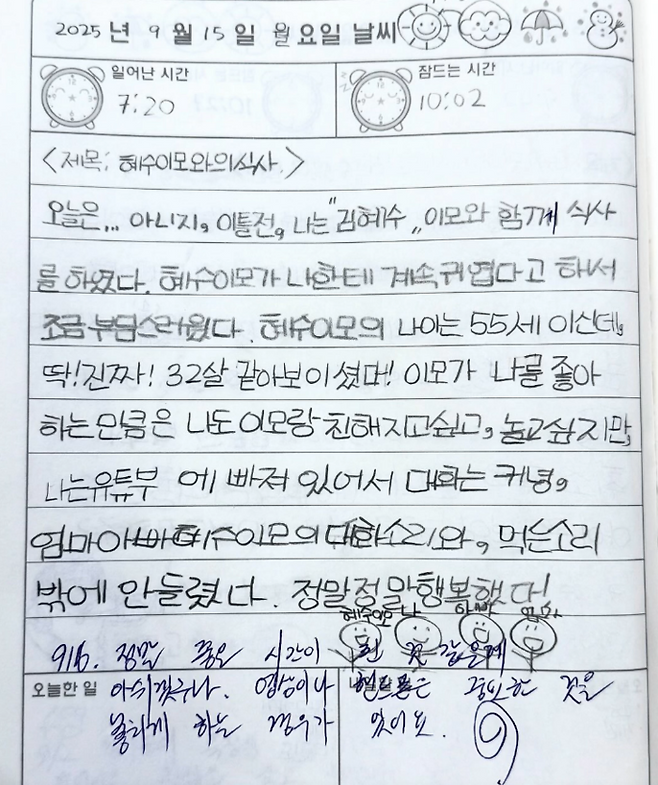 2025 년 9 월 15 일 월 요일 날씨
일어난 시간 7:20
잠드는 시간 10:02
<제목: 혜수이모와의식사.>
오늘은... 아니지, 이틀전, 나는 "김혜수" 이모와 함께 식사
를 하였다. 혜수이모가 나한테 계속 귀엽다고 하서
조금 부담스러웠다. 혜수이모의 나이는 55세 이신데,
딱! 진짜! 32살 같아보이셨대! 이모가 나를 좋아
하는만큼은 나도 이모랑 친해지고싶고, 놀고싶지만,
나는유튜부 에 빠져 있어서 대화는 커녕,
엄마아빠혜수이모의 대화소리와, 먹는소리
밖에 안들렸다. 정말정말행복했다!
혜수이모 나 아빠 엄마
9/16. 정말 좋은 시간이 된 것 같은데
오늘한 일 아쉬웠구나. 영상이나 핸드폰은 중요한 것을
놓치게 하는 경우가 있어요.